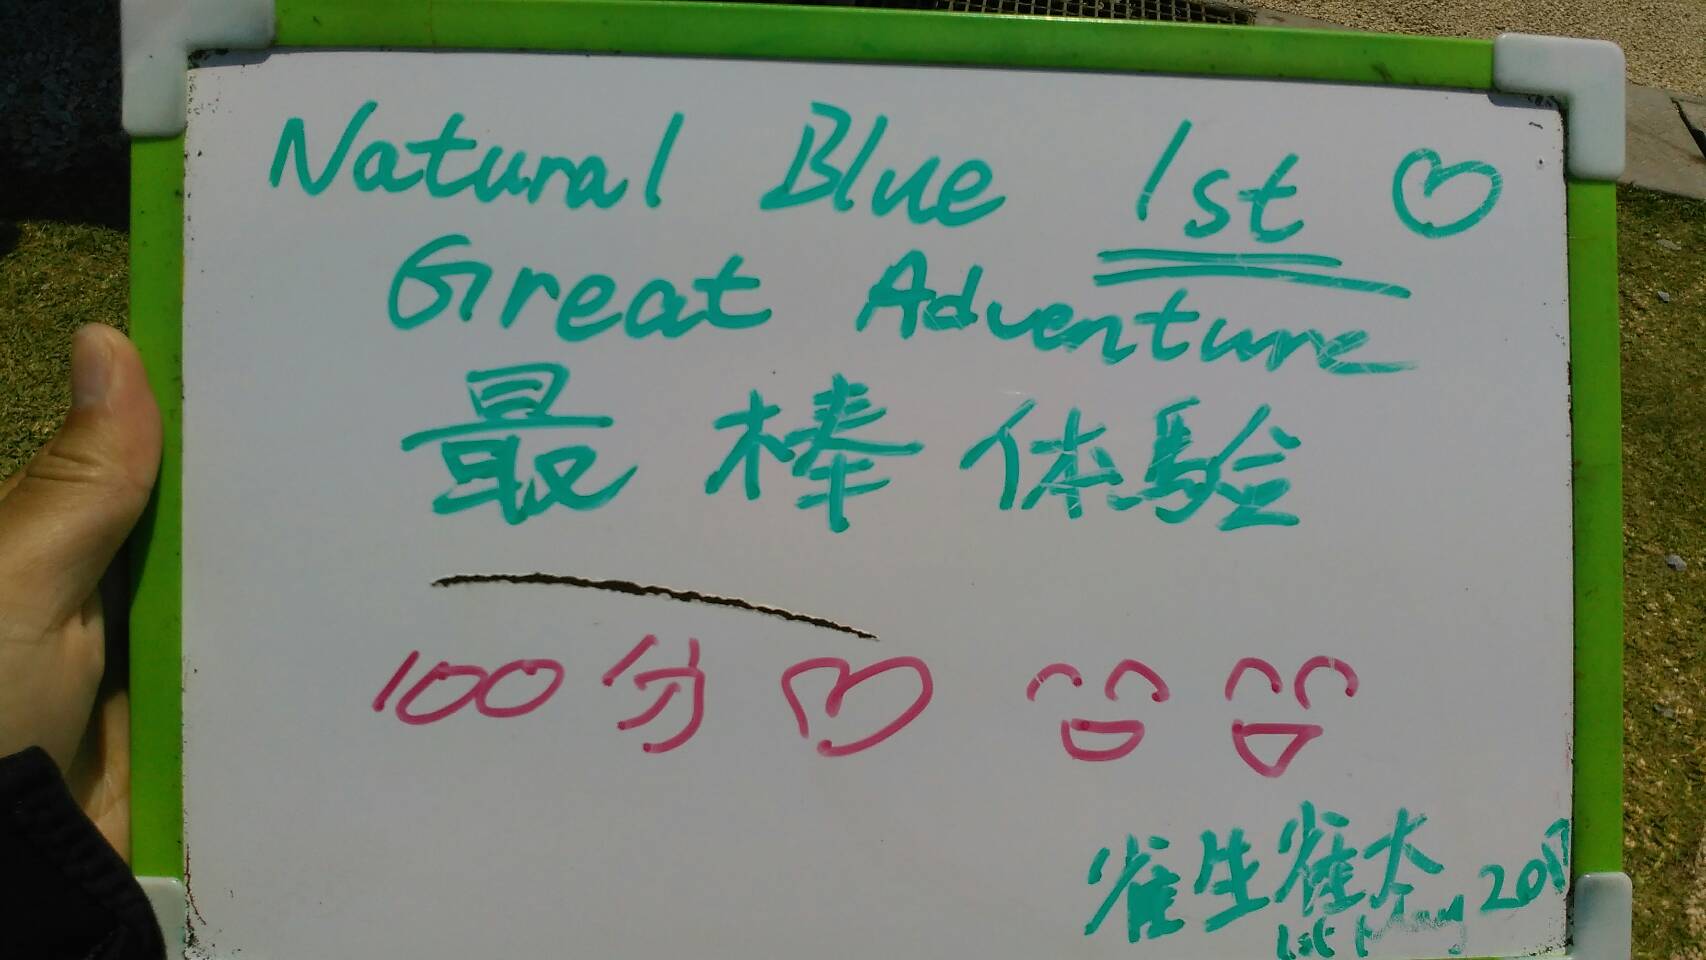 Natural Blue 1st
Great Adventure
最棒体驗
100分
雀生雀太
1st May 2017